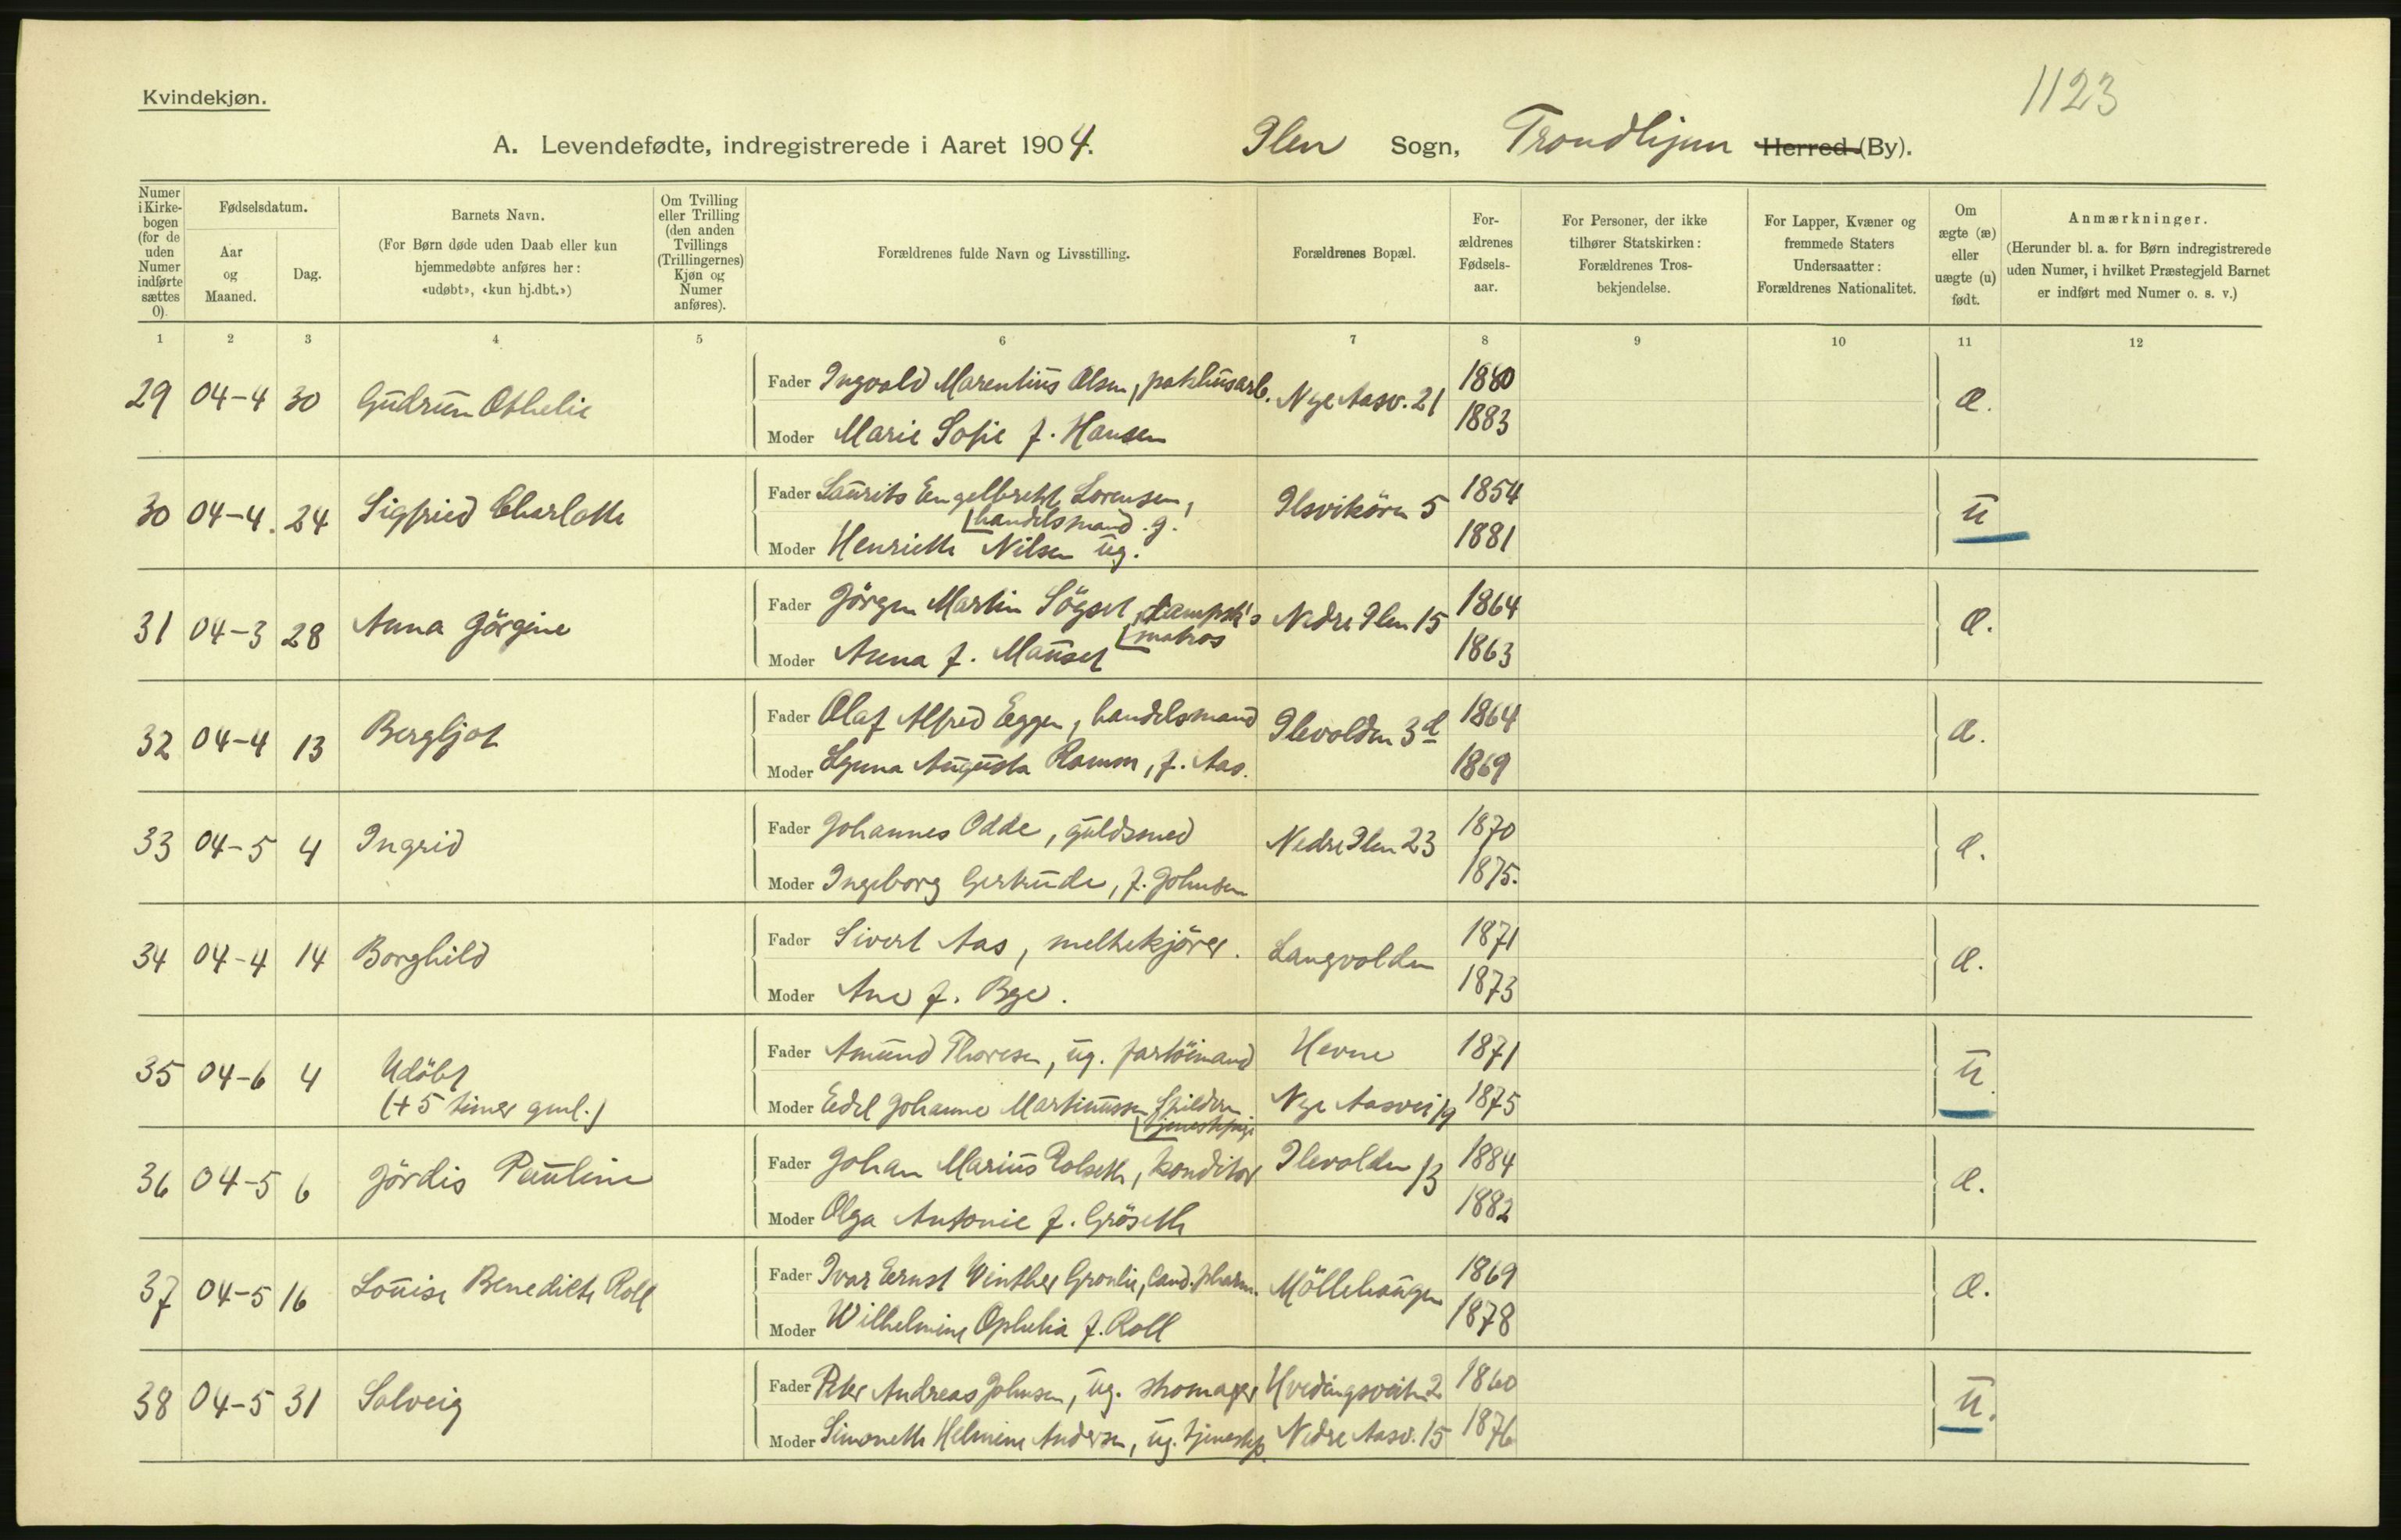 1123
Kvindekjøn.
A. Levendefødte, indregistrerede i Aaret 1904. Ilen Sogn, Trondhjem Herred (By).
Numer i Kirke-bogen (for de uden Numer indførte sættes 0).
Fødselsdatum.
Aar og Maaned.
Dag.
Barnets Navn.
(For Børn døde uden Daab eller kun hjemmedøbte anføres her: «udøbt», «kun hj.dbt.»)
Om Tvilling eller Trilling (den anden Tvillings (Trillingernes) Kjøn og Numer anføres).
Forældrenes fulde Navn og Livsstilling.
Forældrenes Bopæl.
For-ældrenes Fødsels-aar.
For Personer, der ikke tilhører Statskirken: Forældrenes Tros-bekjendelse.
For Lapper, Kvæner og fremmede Staters Undersaatter: Forældrenes Nationalitet.
Om ægte (æ) eller uægte (u) født.
Anmærkninger.
(Herunder bl. a. for Børn indregistrerede uden Numer, i hvilket Præstegjeld Barnet er indført med Numer o. s. v.)
1 2 3 4 5 6 7 8 9 10 11 12
29 04-4 30 Gudrun Othelie Fader Ingvald Marentius Olsen, pakhusarb. Nye Aasv. 21 1880 æ.
Moder Marie Sofie f. Hansen 1883
30 04-4. 24 Sigfried Charlotte Fader Laurits Engelbreckt Lorensen, handelsmand. g. Ilsvikören 5 1854 u
Moder Henriette Nilsen ug. 1881
31 04-3 28 Anna Görgine Fader Görgen Martin Sögset, dampsk's matros Nedre Ilen 15 1864 æ.
Moder Anna f. Mauset 1863
32 04-4 13 Bergljot Fader Olaf Alfred Eggen, handelsmand Ilevolden 3d 1864 æ.
Moder Augusta Ramm, f. Aas. 1869
33 04-5 4 Ingrid Fader Johannes Odde, guldsmed Nedre Ilen 23 1870 æ.
Moder Ingeborg Gertrude, f. Johnsen 1875.
34 04-4 14 Borghild Fader Sivert Aas, melkekjörer. Langvolden 1871 æ.
Moder Ane f. Bye. 1873
35 04-6 4 Udöbt (+ 5 timer gml.) Fader Amund Thoresen, ug. fartöimand Hevne 1871 u.
Moder Edel Johanne Martinussen, tjenestepige Nye Aasvei 19 1875
36 04-5 6 Gördis Pauline Fader Johan Marius Rolseth, konditor Ilevolden 13 1884 æ.
Moder Olga Antonie f. Gröseth 1882
37 04-5 16 Louise Benedikte Roll Fader Ivar Ernst Winther Gronlie, Cand. pharm. Möllehaugen 1869 æ.
Moder Wilhelmine Ophelia f. Roll 1878
38 04-5 31 Solveig Fader Peter Andreas Johnsen, ug. skomager Hvedingsveiten 2 1860 u.
Moder Simonette Helmine Andersen, ug. tjenestep. Nedre Aasv. 15 1876